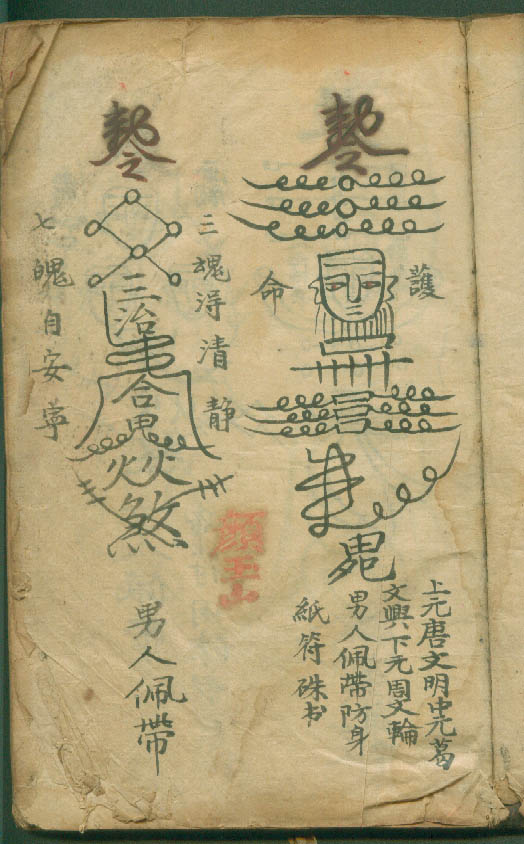 護
命
上元唐文明中元葛
文興下元周文輪
男人佩帶防身
紙符硃书
三魂淂清静
三治
合鬼
煞
七魄自安寧
男人佩帶
顏玉山